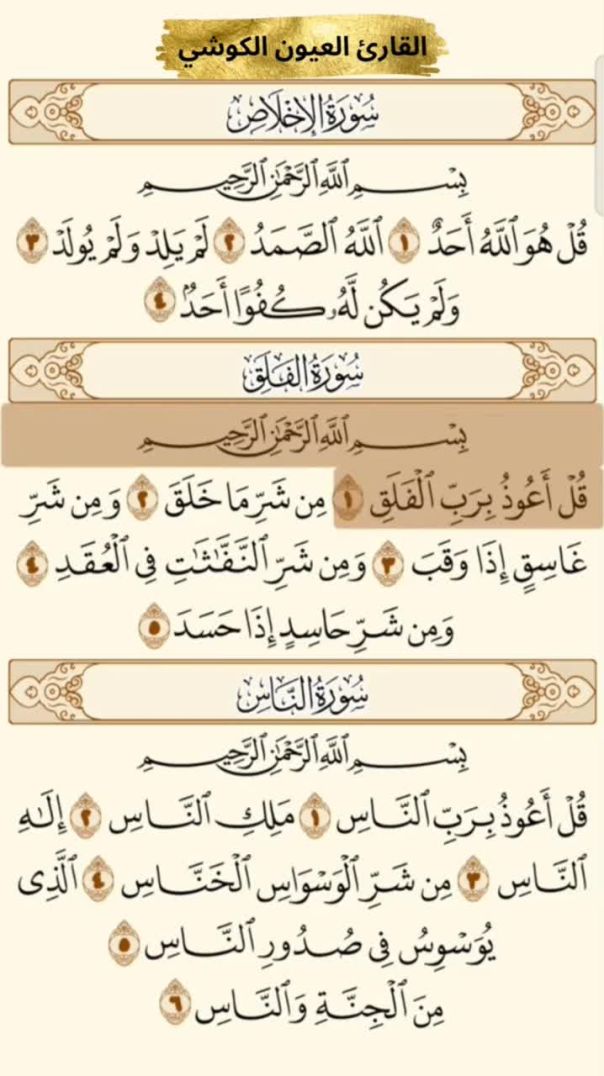 القارئ العيون الكوشي
سُورَةُ الإِخْلَاصِ
بِسْمِ ٱللَّهِ ٱلرَّحْمَٰنِ ٱلرَّحِيمِ
قُلْ هُوَ ٱللَّهُ أَحَدٌ ١ ٱللَّهُ ٱلصَّمَدُ ٢ لَمْ يَلِدْ وَلَمْ يُولَدْ ٣
وَلَمْ يَكُن لَّهُۥ كُفُوًا أَحَدٌۢ ٤
سُورَةُ الفَلَقِ
بِسْمِ ٱللَّهِ ٱلرَّحْمَٰنِ ٱلرَّحِيمِ
قُلْ أَعُوذُ بِرَبِّ ٱلْفَلَقِ ١ مِن شَرِّ مَا خَلَقَ ٢ وَمِن شَرِّ
غَاسِقٍ إِذَا وَقَبَ ٣ وَمِن شَرِّ ٱلنَّفَّٰثَٰتِ فِى ٱلْعُقَدِ ٤
وَمِن شَرِّ حَاسِدٍ إِذَا حَسَدَ ٥
سُورَةُ النَّاسِ
بِسْمِ ٱللَّهِ ٱلرَّحْمَٰنِ ٱلرَّحِيمِ
قُلْ أَعُوذُ بِرَبِّ ٱلنَّاسِ ١ مَلِكِ ٱلنَّاسِ ٢ إِلَٰهِ
ٱلنَّاسِ ٣ مِن شَرِّ ٱلْوَسْوَاسِ ٱلْخَنَّاسِ ٤ ٱلَّذِى
يُوَسْوِسُ فِى صُدُورِ ٱلنَّاسِ ٥
مِنَ ٱلْجِنَّةِ وَٱلنَّاسِ ٦